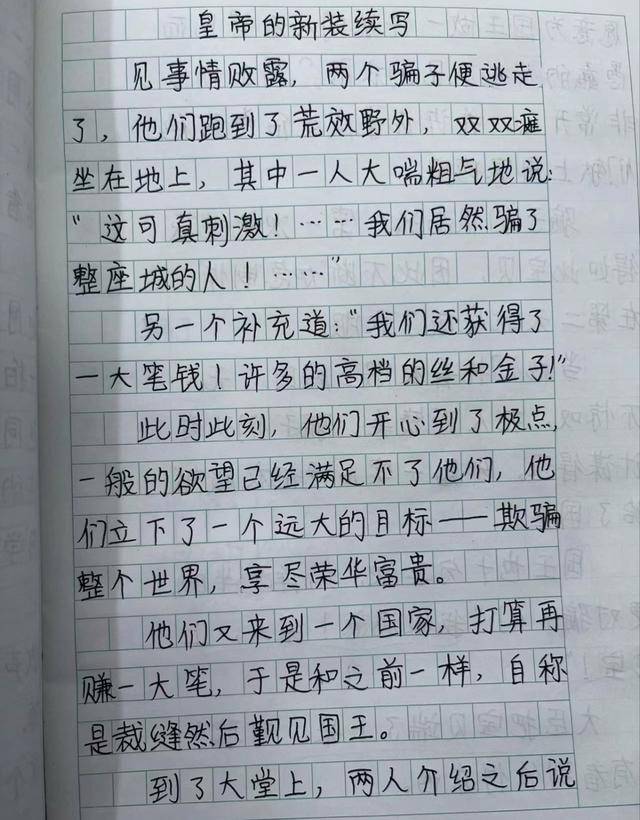 皇帝的新装续写
见事情败露，两个骗子便逃走
了，他们跑到了荒效野外，双双瘫
坐在地上，其中一人大喘粗气地说：
“这可真刺激！……我们居然骗了
整座城的人！……”
另一个补充道：“我们还获得了
一大笔钱！许多的高档的丝和金子！”
此时此刻，他们开心到了极点，
一般的欲望已经满足不了他们，他
们立下了一个远大的目标——欺骗
整个世界，享尽荣华富贵。
他们又来到一个国家，打算再
赚一大笔，于是和之前一样，自称
是裁缝然后觐见国王。
到了大堂上，两人介绍之后说